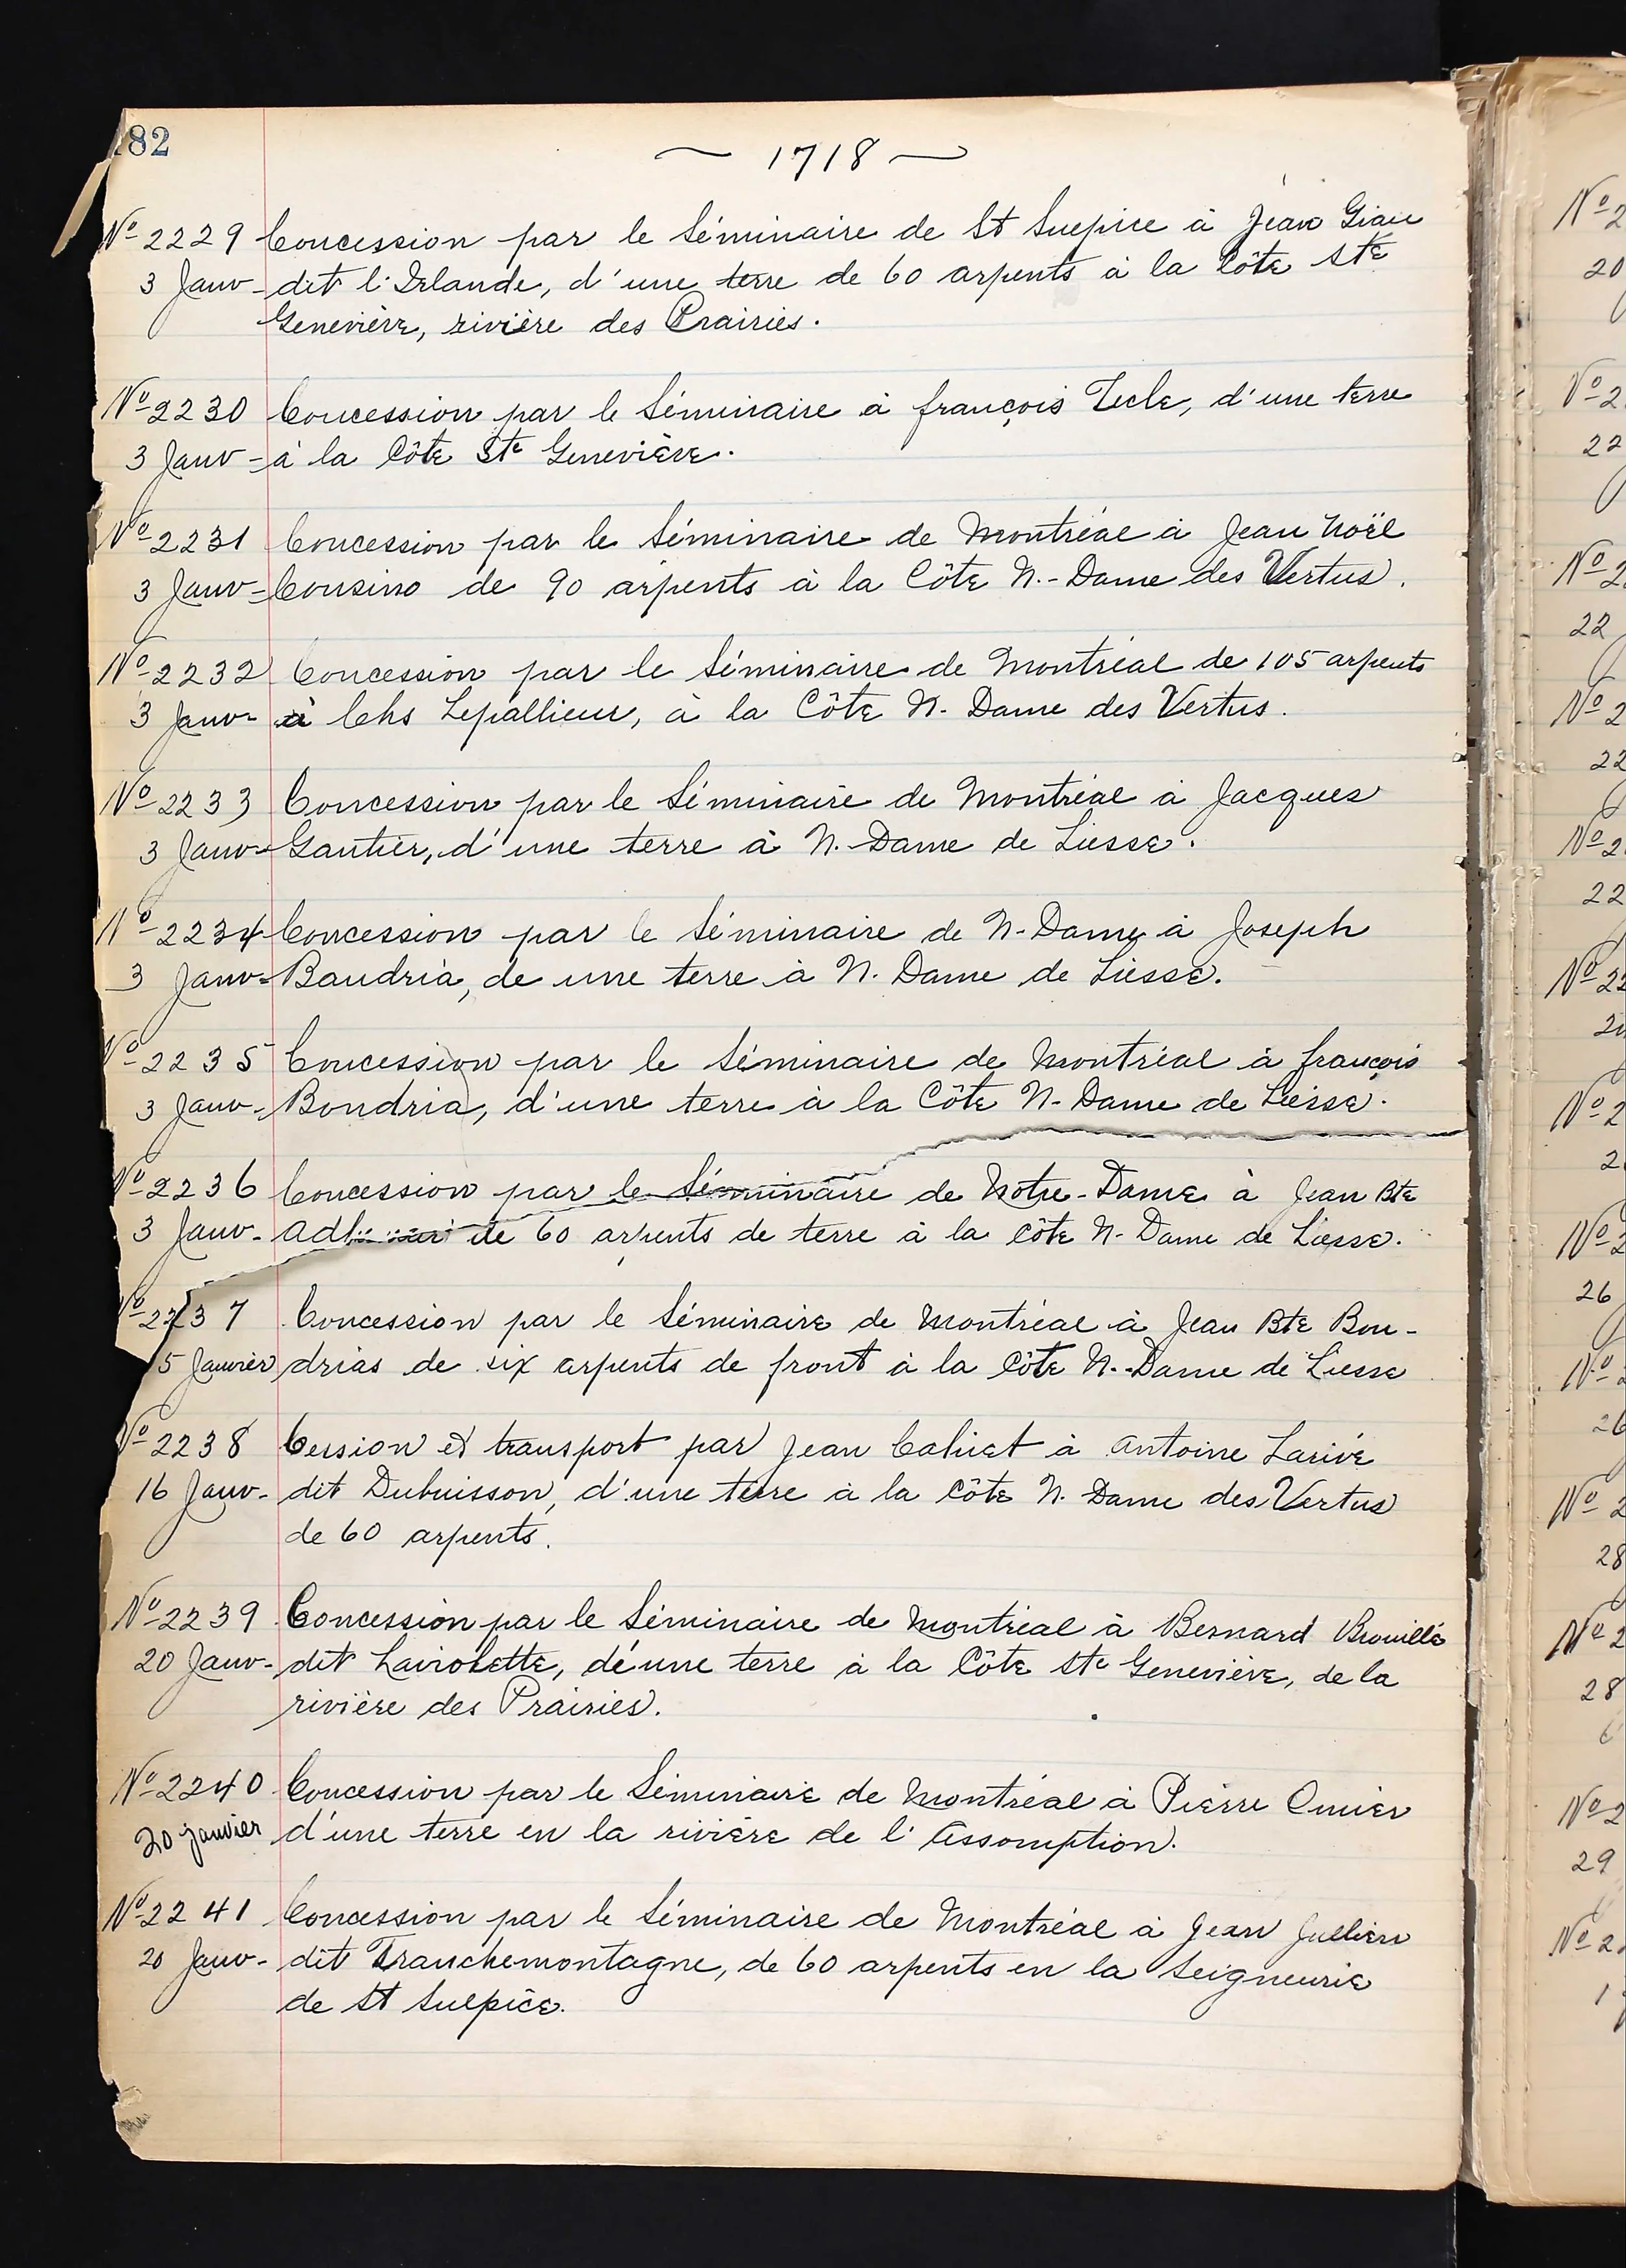 182
~ 1718 ~
No 2229 Concession par le Séminaire de St Sulpice à Jean Giau
3 Janv - dit l'Irlande, d'une terre de 60 arpents à la Côte Ste
Geneviève, rivière des Prairies.
No 2230 Concession par le Séminaire à françois Tecle, d'une terre
3 Janv - à la Côte Ste Geneviève.
No 2231 Concession par le Séminaire de Montréal à Jean Noël
3 Janv - Cousino de 90 arpents à la Côte N.-Dame des Vertus.
No 2232 Concession par le Séminaire de Montréal de 105 arpents
3 Janv - à Chs Lepallieur, à la Côte N. Dame des Vertus.
No 2233 Concession par le Séminaire de Montréal à Jacques
3 Janv - Gautier, d'une terre à N. Dame de Liesse.
No 2234 Concession par le Séminaire de N-Dame à Joseph
3 Janv - Baudria, de une terre à N. Dame de Liesse.
No 2235 Concession par le Séminaire de Montréal à françois
3 Janv - Boudria, d'une terre à la Côte N-Dame de Liesse.
No 2236 Concession par le Séminaire de Notre-Dame à Jean Bte
3 Janv - de 60 arpents de terre à la côte N-Dame de Liesse.
No 2237 Concession par le Séminaire de Montréal à Jean Bte Bou-
5 Janvier drias de six arpents de front à la Côte N.-Dame de Liesse
No 2238 Cession et transport par Jean Cahiet à Antoine Larivé
16 Janv - dit Dubuisson, d'une terre à la Côte N. Dame des Vertus
de 60 arpents.
No 2239 Concession par le Séminaire de Montréal à Bernard Brouillé
20 Janv - dit Laviolette, d'une terre à la Côte Ste Geneviève, de la
rivière des Prairies.
No 2240 Concession par le Séminaire de Montréal à Pierre Omier
20 janvier d'une terre en la rivière de l'Assomption.
No 2241 Concession par le Séminaire de Montréal à Jean Jullien
20 Janv - dit Tranchemontagne, de 60 arpents en la Seigneurie
de St Sulpice.